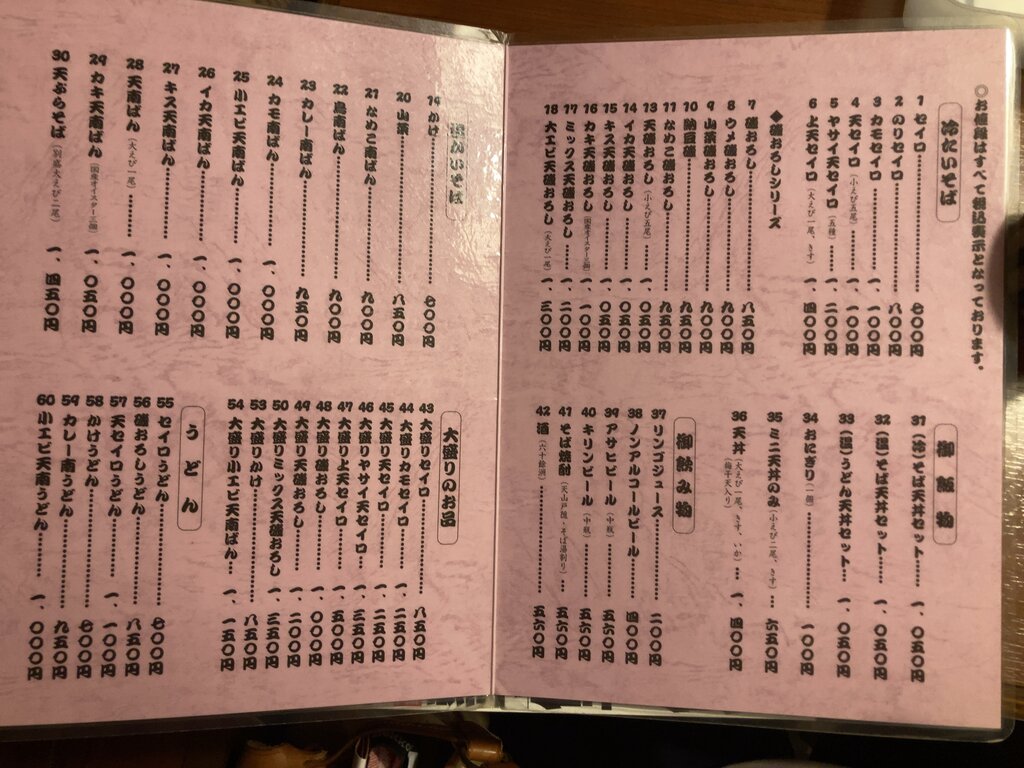 ◎お値段はすべて税込表示となっております。
冷たいそば
1 セイロ 七〇〇円
2 のりセイロ 八〇〇円
3 カモセイロ 一、一〇〇円
4 天セイロ（小えび五尾） 一、一〇〇円
5 ヤサイ天セイロ（五種） 一、二〇〇円
6 上天セイロ（大えび一尾、きす） 一、四〇〇円
◆磯おろしシリーズ
7 磯おろし 八五〇円
8 ウメ磯おろし 九〇〇円
9 山菜磯おろし 九〇〇円
10 納豆磯 九五〇円
11 なめこ磯おろし 九五〇円
13 天磯おろし（小えび五尾） 一、〇五〇円
14 イカ天磯おろし 一、〇五〇円
15 キス天磯おろし 一、〇五〇円
16 カキ天磯おろし（国産オイスター三個） 一、一〇〇円
17 ミックス天磯おろし 一、二〇〇円
18 大エビ天磯おろし（大えび一尾） 一、三〇〇円
御飯物
31（冷）そば天丼セット 一、〇五〇円
32（温）そば天丼セット 一、〇五〇円
33（温）うどん天丼セット 一、〇五〇円
34 おにぎり（一個） 一〇〇円
35 ミニ天丼のみ（小えび二尾、きす） 六五〇円
36 天丼（大えび一尾、きす、いか）（梅干天入り） 一、四〇〇円
御飲み物
37 リンゴジュース 二〇〇円
38 ノンアルコールビール 四〇〇円
39 アサヒビール（中瓶） 五六〇円
40 キリンビール（中瓶） 五六〇円
41 そば焼酎（天山戸隠・そば湯割り） 五六〇円
42 酒（六十餘洲） 五六〇円
温かいそば
19 かけ 七〇〇円
20 山菜 八五〇円
21 なめこ南ばん 九〇〇円
22 鳥南ばん 九〇〇円
23 カレー南ばん 九五〇円
24 カモ南ばん 一、〇〇〇円
25 小エビ天南ばん 一、〇〇〇円
26 イカ天南ばん 一、〇〇〇円
27 キス天南ばん 一、〇〇〇円
28 天南ばん（大えび一尾） 一、〇〇〇円
29 カキ天南ばん（国産オイスター三個） 一、〇五〇円
30 天ぷらそば（別盛大えび二尾） 一、四五〇円
大盛りのお品
43 大盛りセイロ 八五〇円
44 大盛りカモセイロ 一、二五〇円
45 大盛り天セイロ 一、二五〇円
46 大盛りヤサイ天セイロ 一、三五〇円
47 大盛り上天セイロ 一、五五〇円
48 大盛り磯おろし 一、〇〇〇円
49 大盛り天磯おろし 一、二〇〇円
50 大盛りミックス天磯おろし 一、三五〇円
53 大盛りかけ 八五〇円
54 大盛り小エビ天南ばん 一、一五〇円
うどん
55 セイロうどん 七〇〇円
56 磯おろしうどん 八五〇円
57 天セイロうどん 一、一〇〇円
58 かけうどん 七〇〇円
59 カレー南うどん 九五〇円
60 小エビ天南うどん 一、〇〇〇円